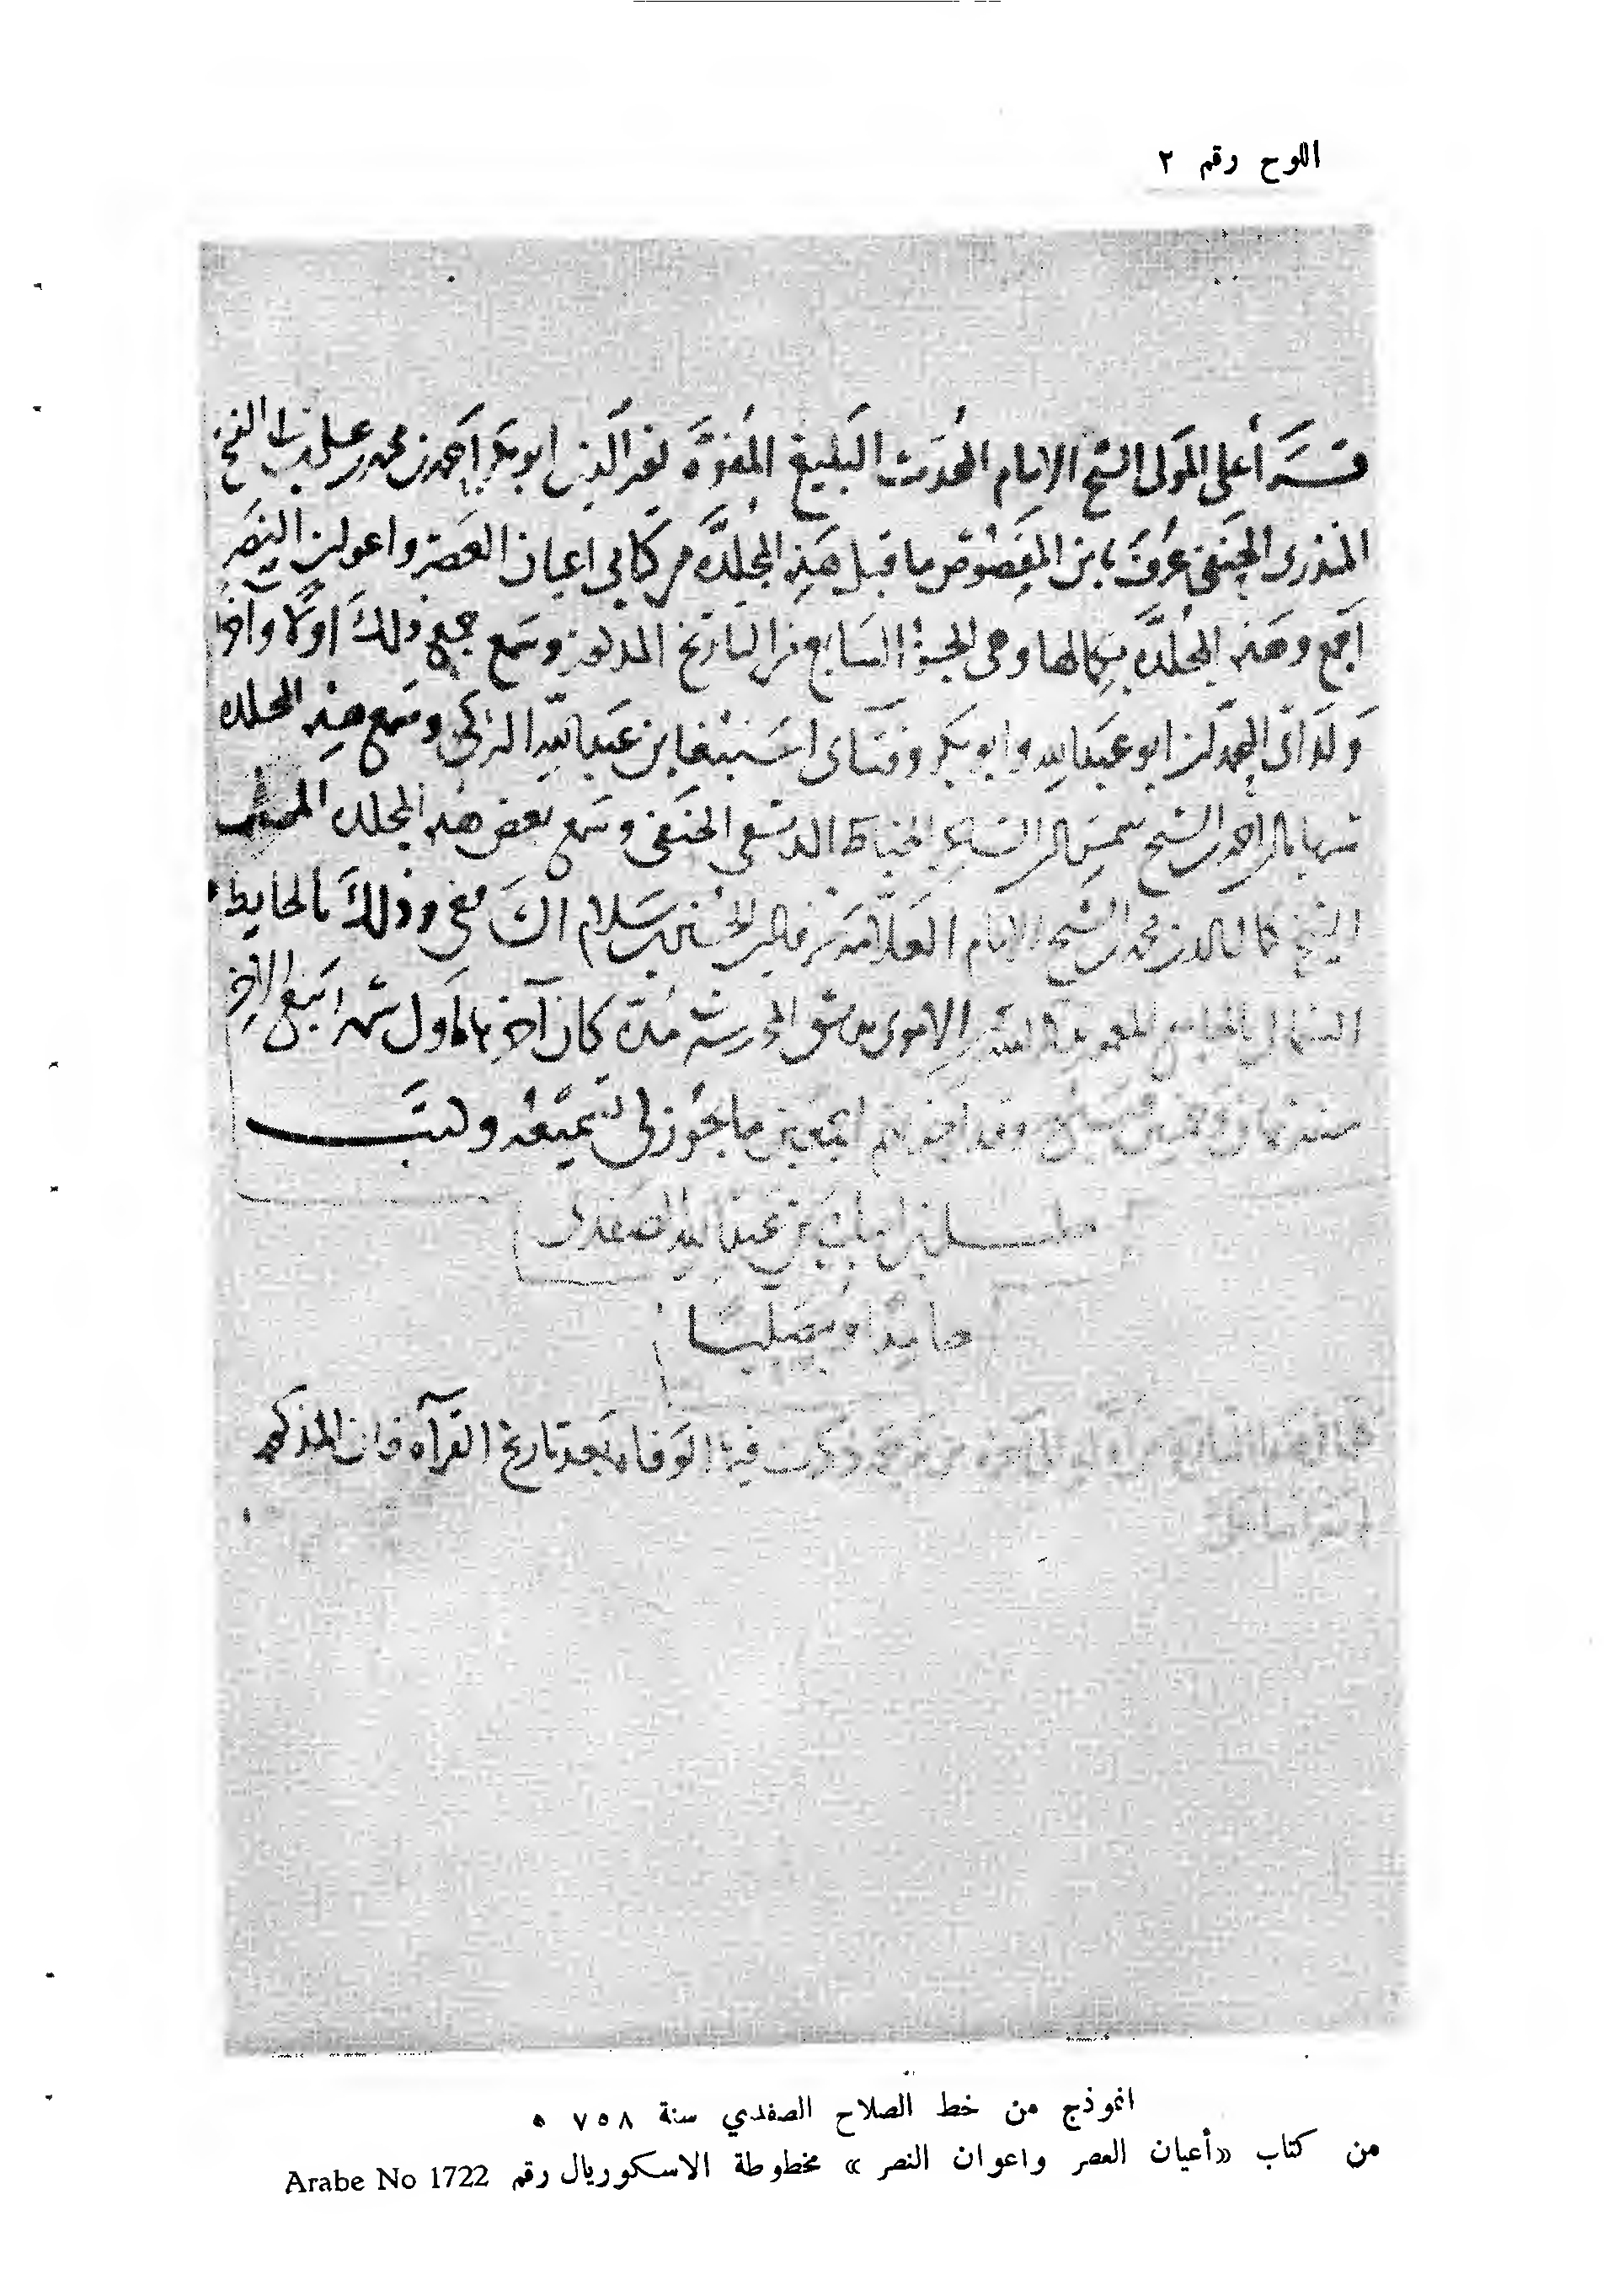 اللوح رقم ٢
قرأ علي المولى الشيخ الامام المحدث البليغ المفوه فخر الدين ابو بكر احمد بن محمد بن علي بن
المنذري الحنفي عرف بابن المقصوص ما قبل هذه المجلدة من كتابي اعيان العصر واعوان النصر
اجمع وهذه المجلدة بكمالها وهي الجزؤ السابع من التاريخ المذكور وسمع جميع ذلك اولا وآخرا
ولداي المحمدان ابو عبد الله وابو بكر وفتاي اسنبغا بن عبد الله التركي وسمع هذه المجلدة
شهاب الدين احمد بن الشيخ شمس الدين الخياط الدمشقي الحنفي وسمع بعض هذه المجلدة
الشيخ كمال الدين محمد بن الشيخ الامام العلامة شرف الدين الحسين بن سلام الشافعي وذلك بالحايط
الشمالي بالجامع المعمور الاموي بدمشق المحروسة مدة كان آخرها اول شهر ربيع الاخر
سنة ثمان وخمسين وسبع وقد اجزت لهم اجمعين ما يجوز لي تسميعه وكتب
خليل بن ايبك بن عبد الله الصفدي
حامدا ومصليا
ذكرت فيه الوفاة بعد تاريخ القرآة فان المذكور
انموذج من خط الصلاح الصفدي سنة ٧٥٨ ه
من كتاب «أعيان العصر واعوان النصر» مخطوطة الاسكوريال رقم Arabe No 1722